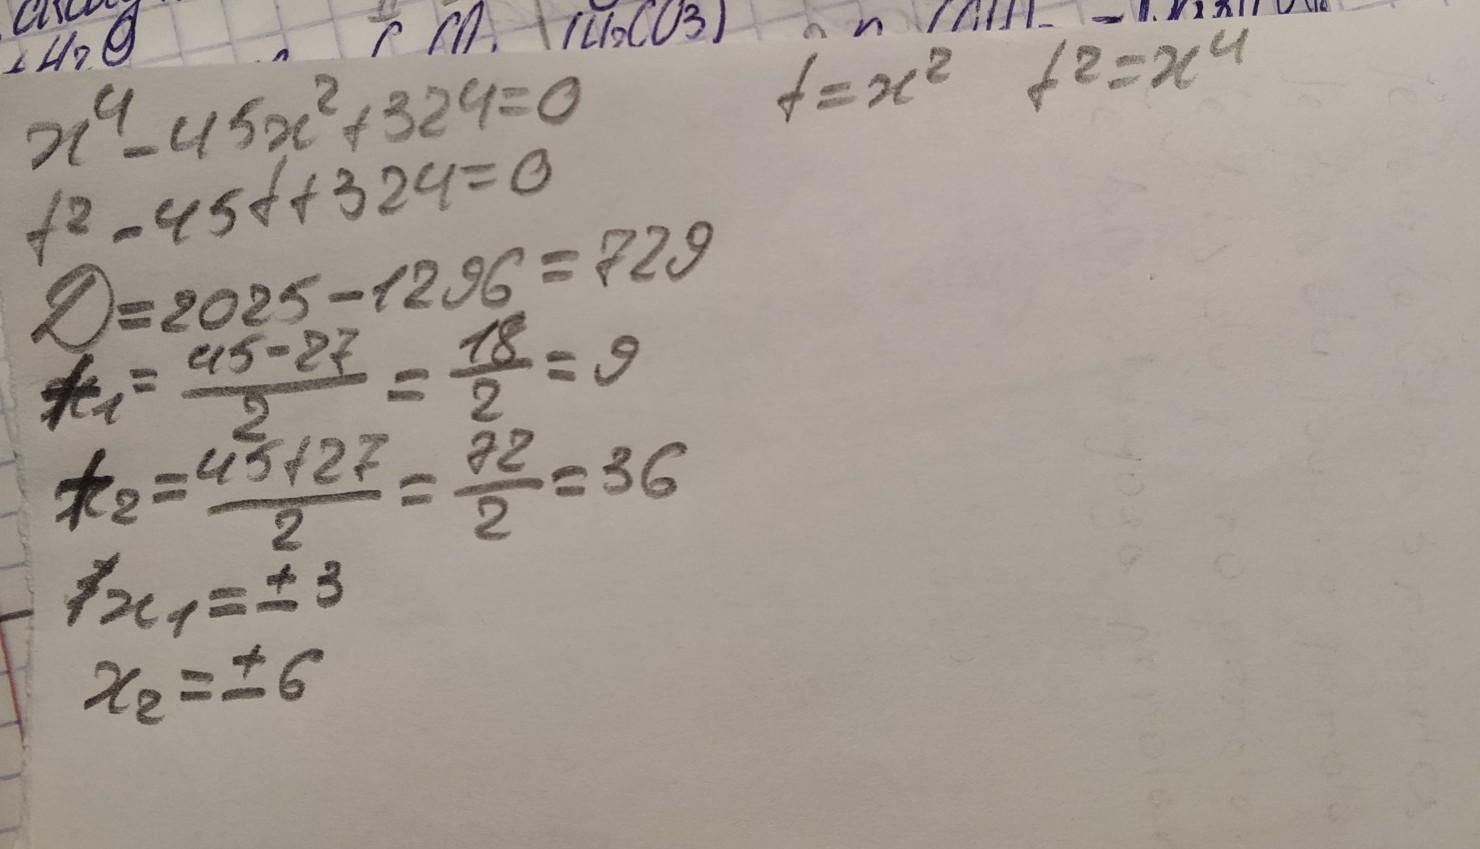 +H₂O
x⁴-45x²+324=0
t=x² t²=x⁴
t²-45t+324=0
D=2025-1296=729
t₁=45-27/2=18/2=9
t₂=45+27/2=72/2=36
x₁=±3
x₂=±6